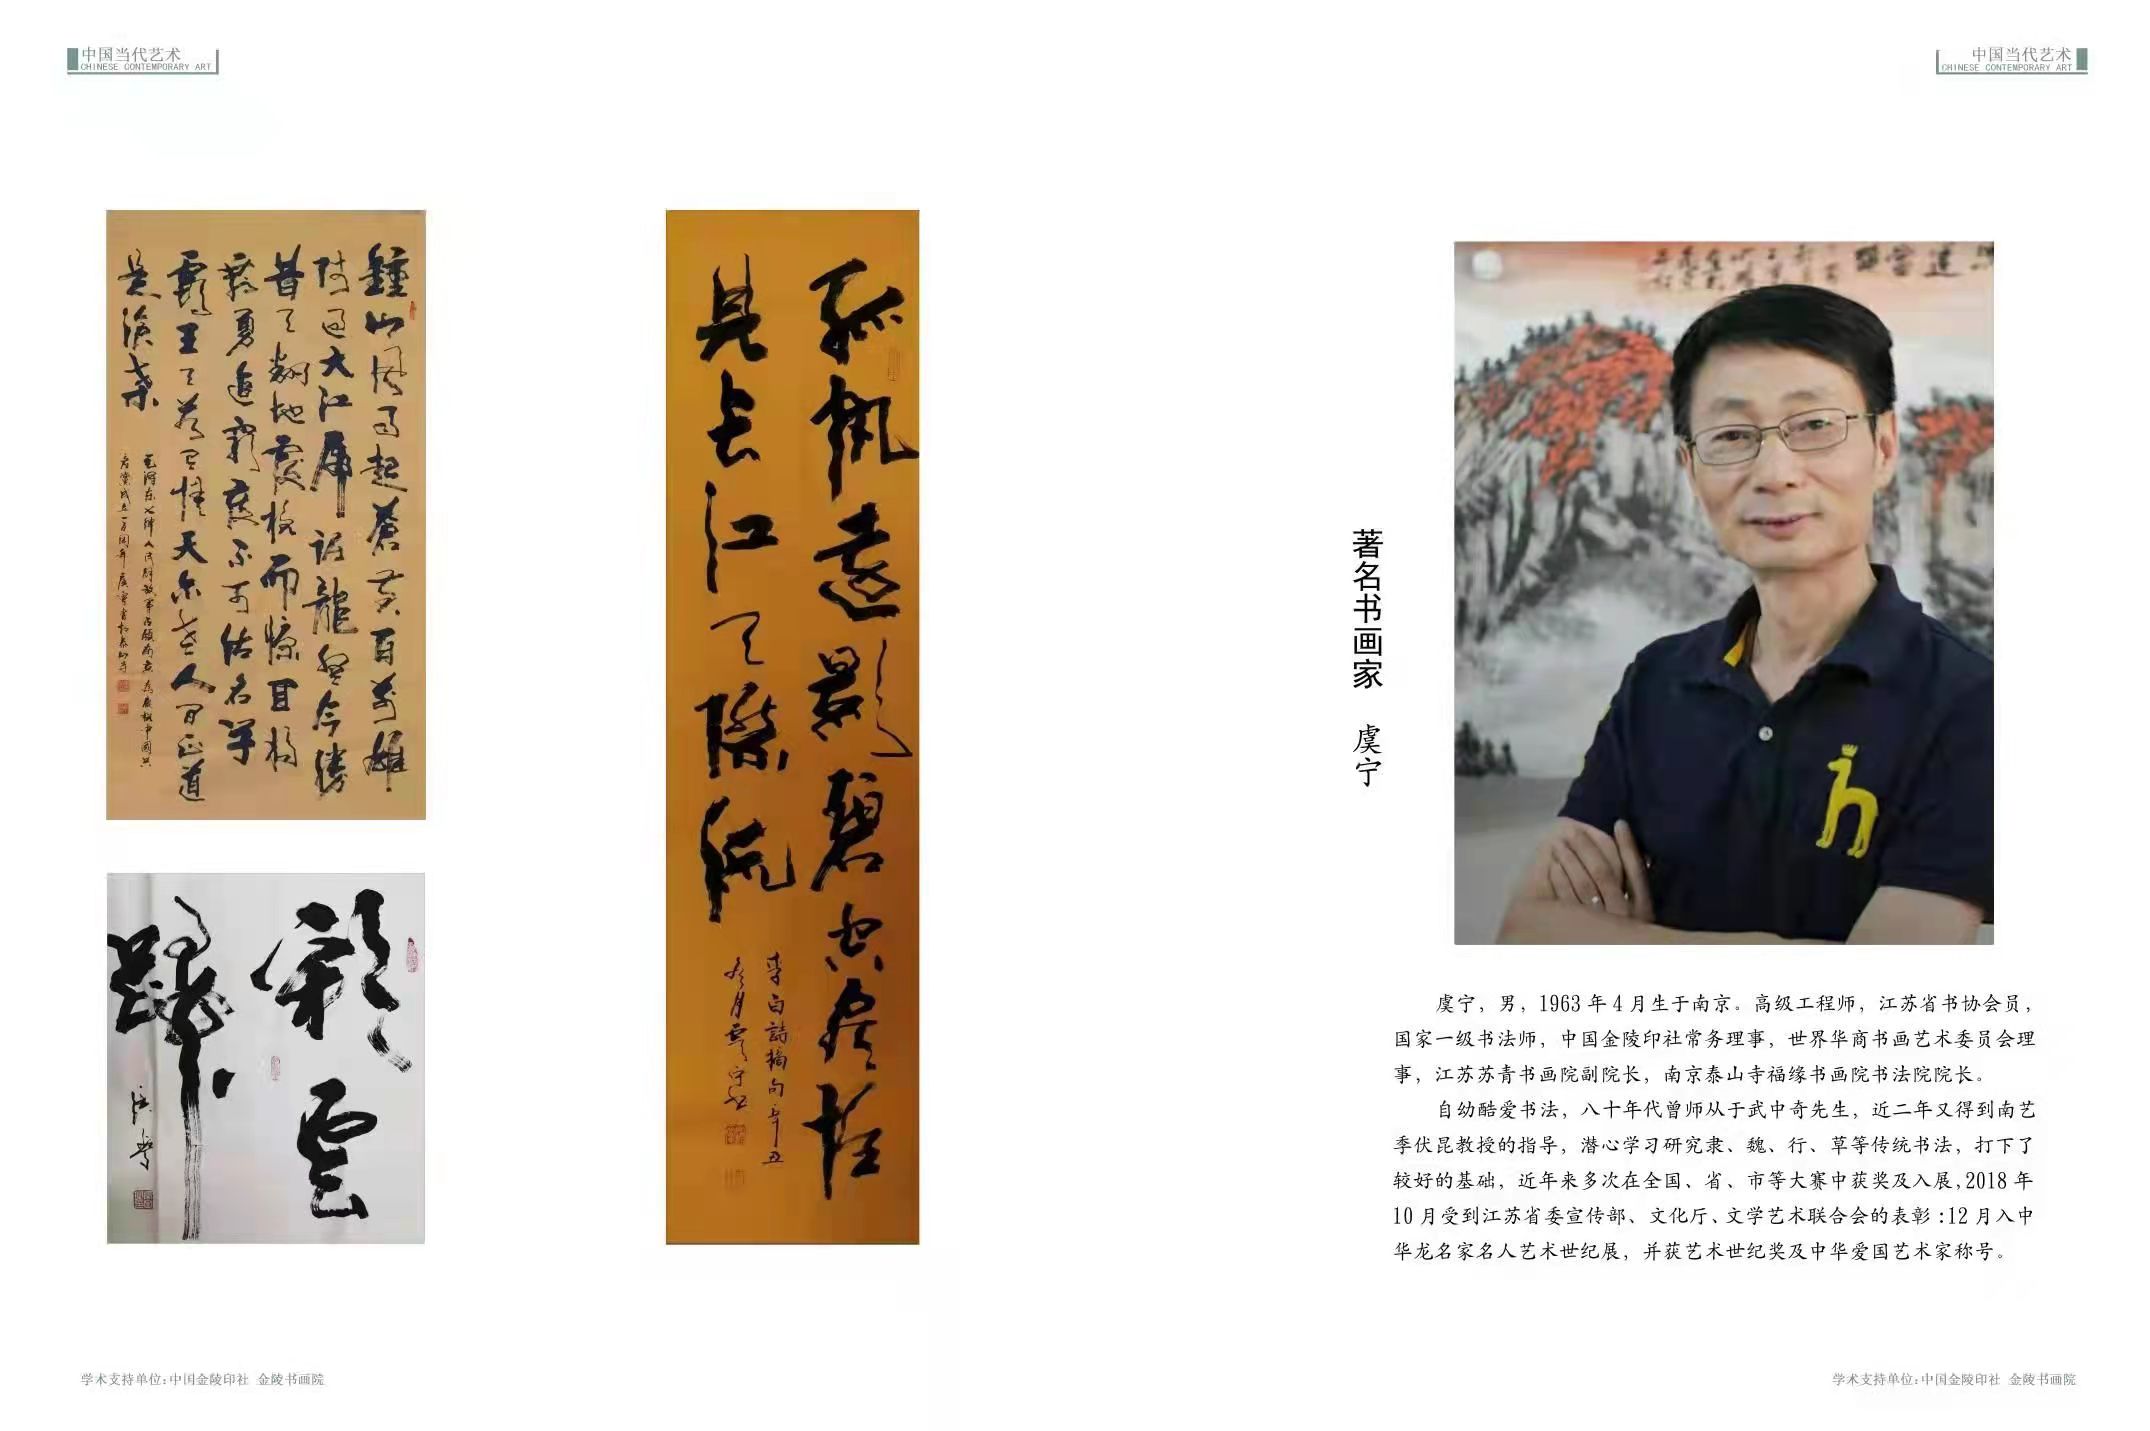 中国当代艺术
CHINESE CONTEMPORARY ART
中国当代艺术
CHINESE CONTEMPORARY ART
鍾山風雨起蒼黄百萬雄
師過大江虎踞龍盤今勝
昔天翻地覆慨而慷宜將
剩勇追窮寇不可沽名學
霸王天若有情天亦老人間正道
是滄桑
毛澤東七律人民解放軍占領南京為慶祝中國共
產黨成立一百周年虞寧書於泰山寺
彩雲
歸
虞寧
孤帆遠影碧空盡惟
見長江天際流
李白詩摘句辛丑
冬月虞寧書
著名书画家 虞宁
虞宁，男，1963年4月生于南京。高级工程师，江苏省书协会员，
国家一级书法师，中国金陵印社常务理事，世界华商书画艺术委员会理
事，江苏苏青书画院副院长，南京泰山寺福缘书画院书法院院长。
自幼酷爱书法，八十年代曾师从于武中奇先生，近二年又得到南艺
季伏昆教授的指导，潜心学习研究隶、魏、行、草等传统书法，打下了
较好的基础，近年来多次在全国、省、市等大赛中获奖及入展，2018年
10月受到江苏省委宣传部、文化厅、文学艺术联合会的表彰：12月入中
华龙名家名人艺术世纪展，并获艺术世纪奖及中华爱国艺术家称号。
学术支持单位：中国金陵印社 金陵书画院
学术支持单位：中国金陵印社 金陵书画院